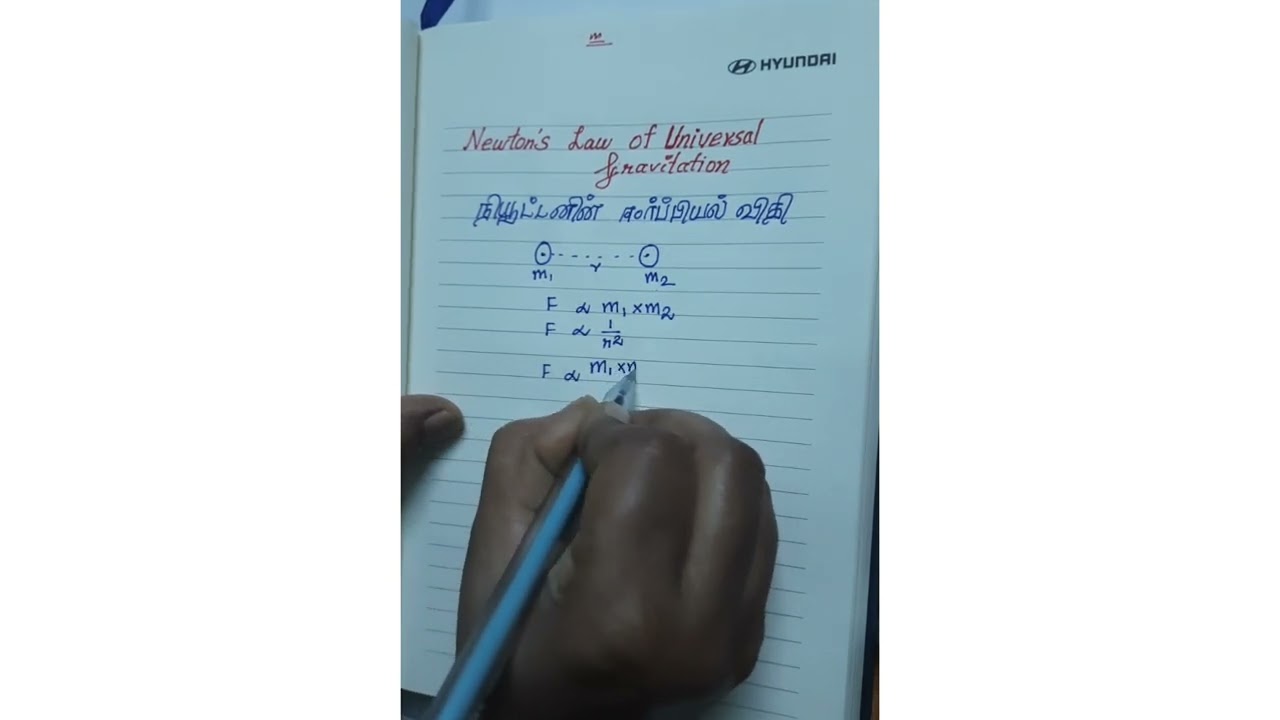 m
HYUNDAI
Newton's Law of Universal
Gravitation
நியூட்டனின் ஈர்ப்பியல் விதி
r
m₁ m₂
F ∝ m₁ × m₂
F ∝ 1/r²
F ∝ m₁ ×